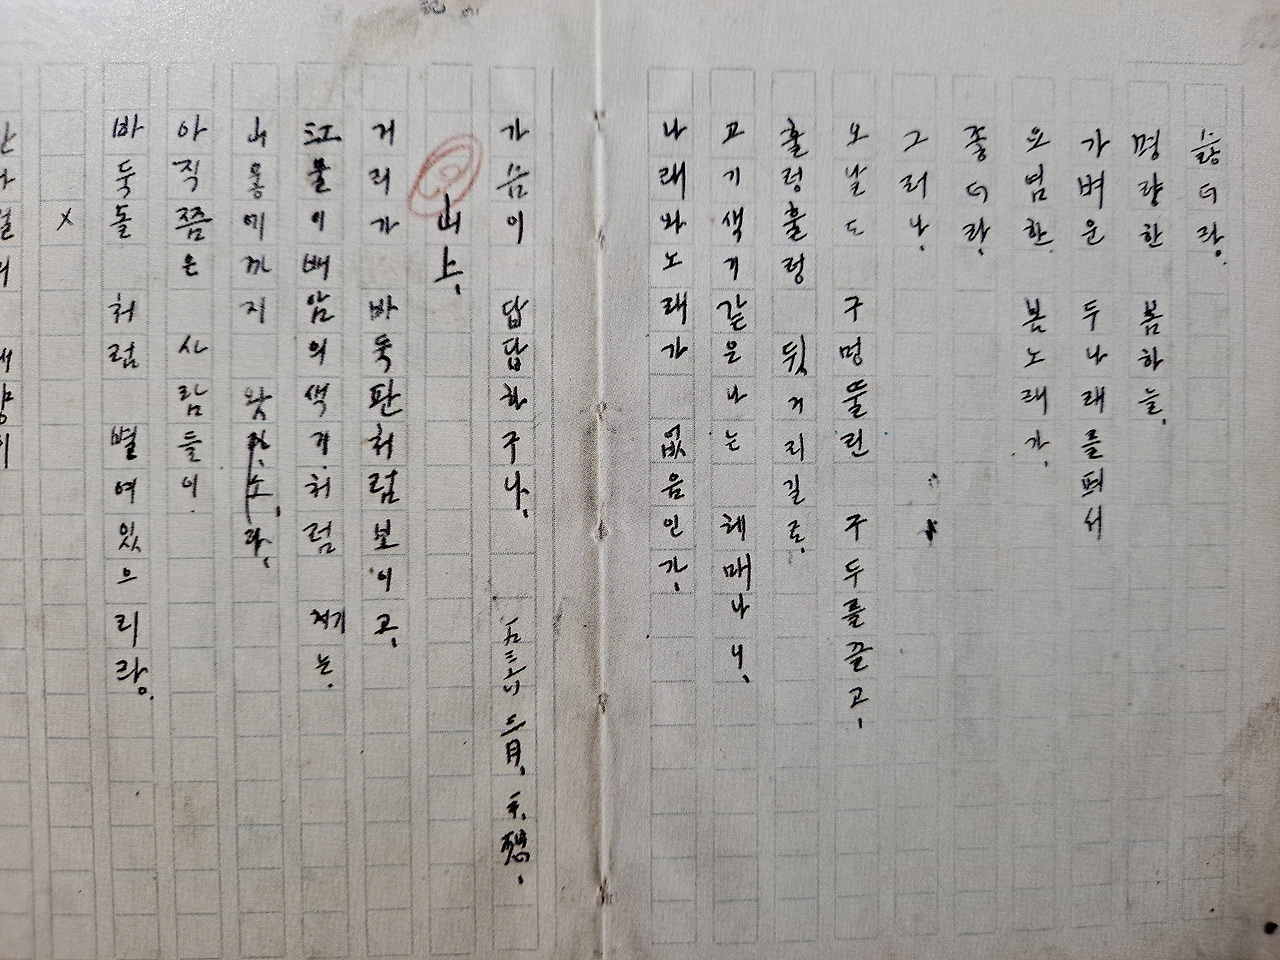 슳더라.
명랑한 봄하늘,
가벼운 두나래를펴서
요염한 봄노래가,
좋더라,
그러나,
오날도 구멍뚤린 구두를끌고,
훌렁훌렁 뒷거리길로,
고기색기같은나는 헤매나니,
나래와노래가 없음인가,
가슴이 답답하구나, 三月, 平, 想,
山上,
거리가 바둑판처럼보이고,
江물이배암의색기처럼 기는
山웋에까지 왓노라,
아직쯤은 사람들이
바둑돌 처럼 별여있으리라.
×